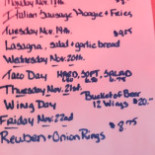 Monday Nov. 18th
Italian Sausage Hoagie + Fries
Tuesday Nov. 19th $9.75
Lasagna, salad + garlic bread
Wednesday Nov. 20th
Taco Day HARD, SOFT, SALAD
Thursday Nov. 21st
Wing Day Bucket of Beer
12 Wings $20.
Friday Nov. 22nd
Reuben + Onion Rings $8.75